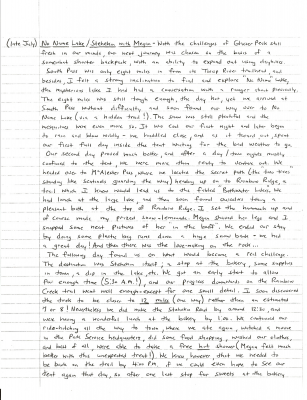 (late July) No Name Lake/Stehekin with Megan - With the challenges of Glacier Peak still
fresh in our minds our next journey was chosen on the basis of a
somewhat shorter backpack, with an ability to expand out using dayhikes.
South Pass was only eight miles in from its Twisp River trailhead, and
besides, I felt a strong inclination to find and explore "No Name" Lake,
the mysterious lake I had had a conversation with a ranger about previously.
The eight miles was still tough enough, the day hot, yet we arrived at
South Pass without difficulty and soon found our way over to No
Name Lake (via a hidden trail!). The snow was still plentiful and the
mosquitoes were even more so. It was cold our first night and later began
to rain and blow mildly - we huddled close and as it turned out spent
our first full day inside the tent waiting for the bad weather to go.
Our second day proved much better, and after a day/two nights mostly
confined to the tent we were more than ready to venture out. We
headed over to McAlester Pass, where we located the secret path (the two trees
standing like sentinels guarding the way) heading up on to Rainbow Ridge, a
trail which I knew would lead up to the fabled "Bathwater" Lakes. We
had lunch at the large lake and then soon found ourselves taking a
pleasant break at the top of Rainbow Ridge. I set the hammock up and
of course made my prized snow-lemonade. Megan shaved her legs and I
snapped some neat pictures of her in the buff. We ended our stay
by doing some plastic bag runs down a huge snow bowl - we had
a great day! And then there was the love-making on the rock...
The following day found us on what would become a real challenge.
The destination was Stehekin: short, a stop at the bakery, some supplies
in town, a dip in the lake, etc. We got an early start to allow
for enough time (5:30 A.M.!), and our progress downwards on the Rainbow
Creek trail went well enough except for one small detail. I soon discovered
the route to be closer to 12 miles (one way) rather than an estimated
7 or 8! Nevertheless we did make the Stehekin Road by around 12:30, and
were having a wonderful lunch at the bakery by 1:00. We continued our
ride-hitching all the way to town, where we ate again, watched a movie
in the Park Service headquarters, did some food shopping, washed our clothes,
and best of all, were able to take a free hot shower (Megan felt much
better with this unexpected treat!). We knew however that we needed to
be back on the trail by 4:00 P.M. if we could even hope to see our
tent again that day, so after one last stop for sweets at the bakery